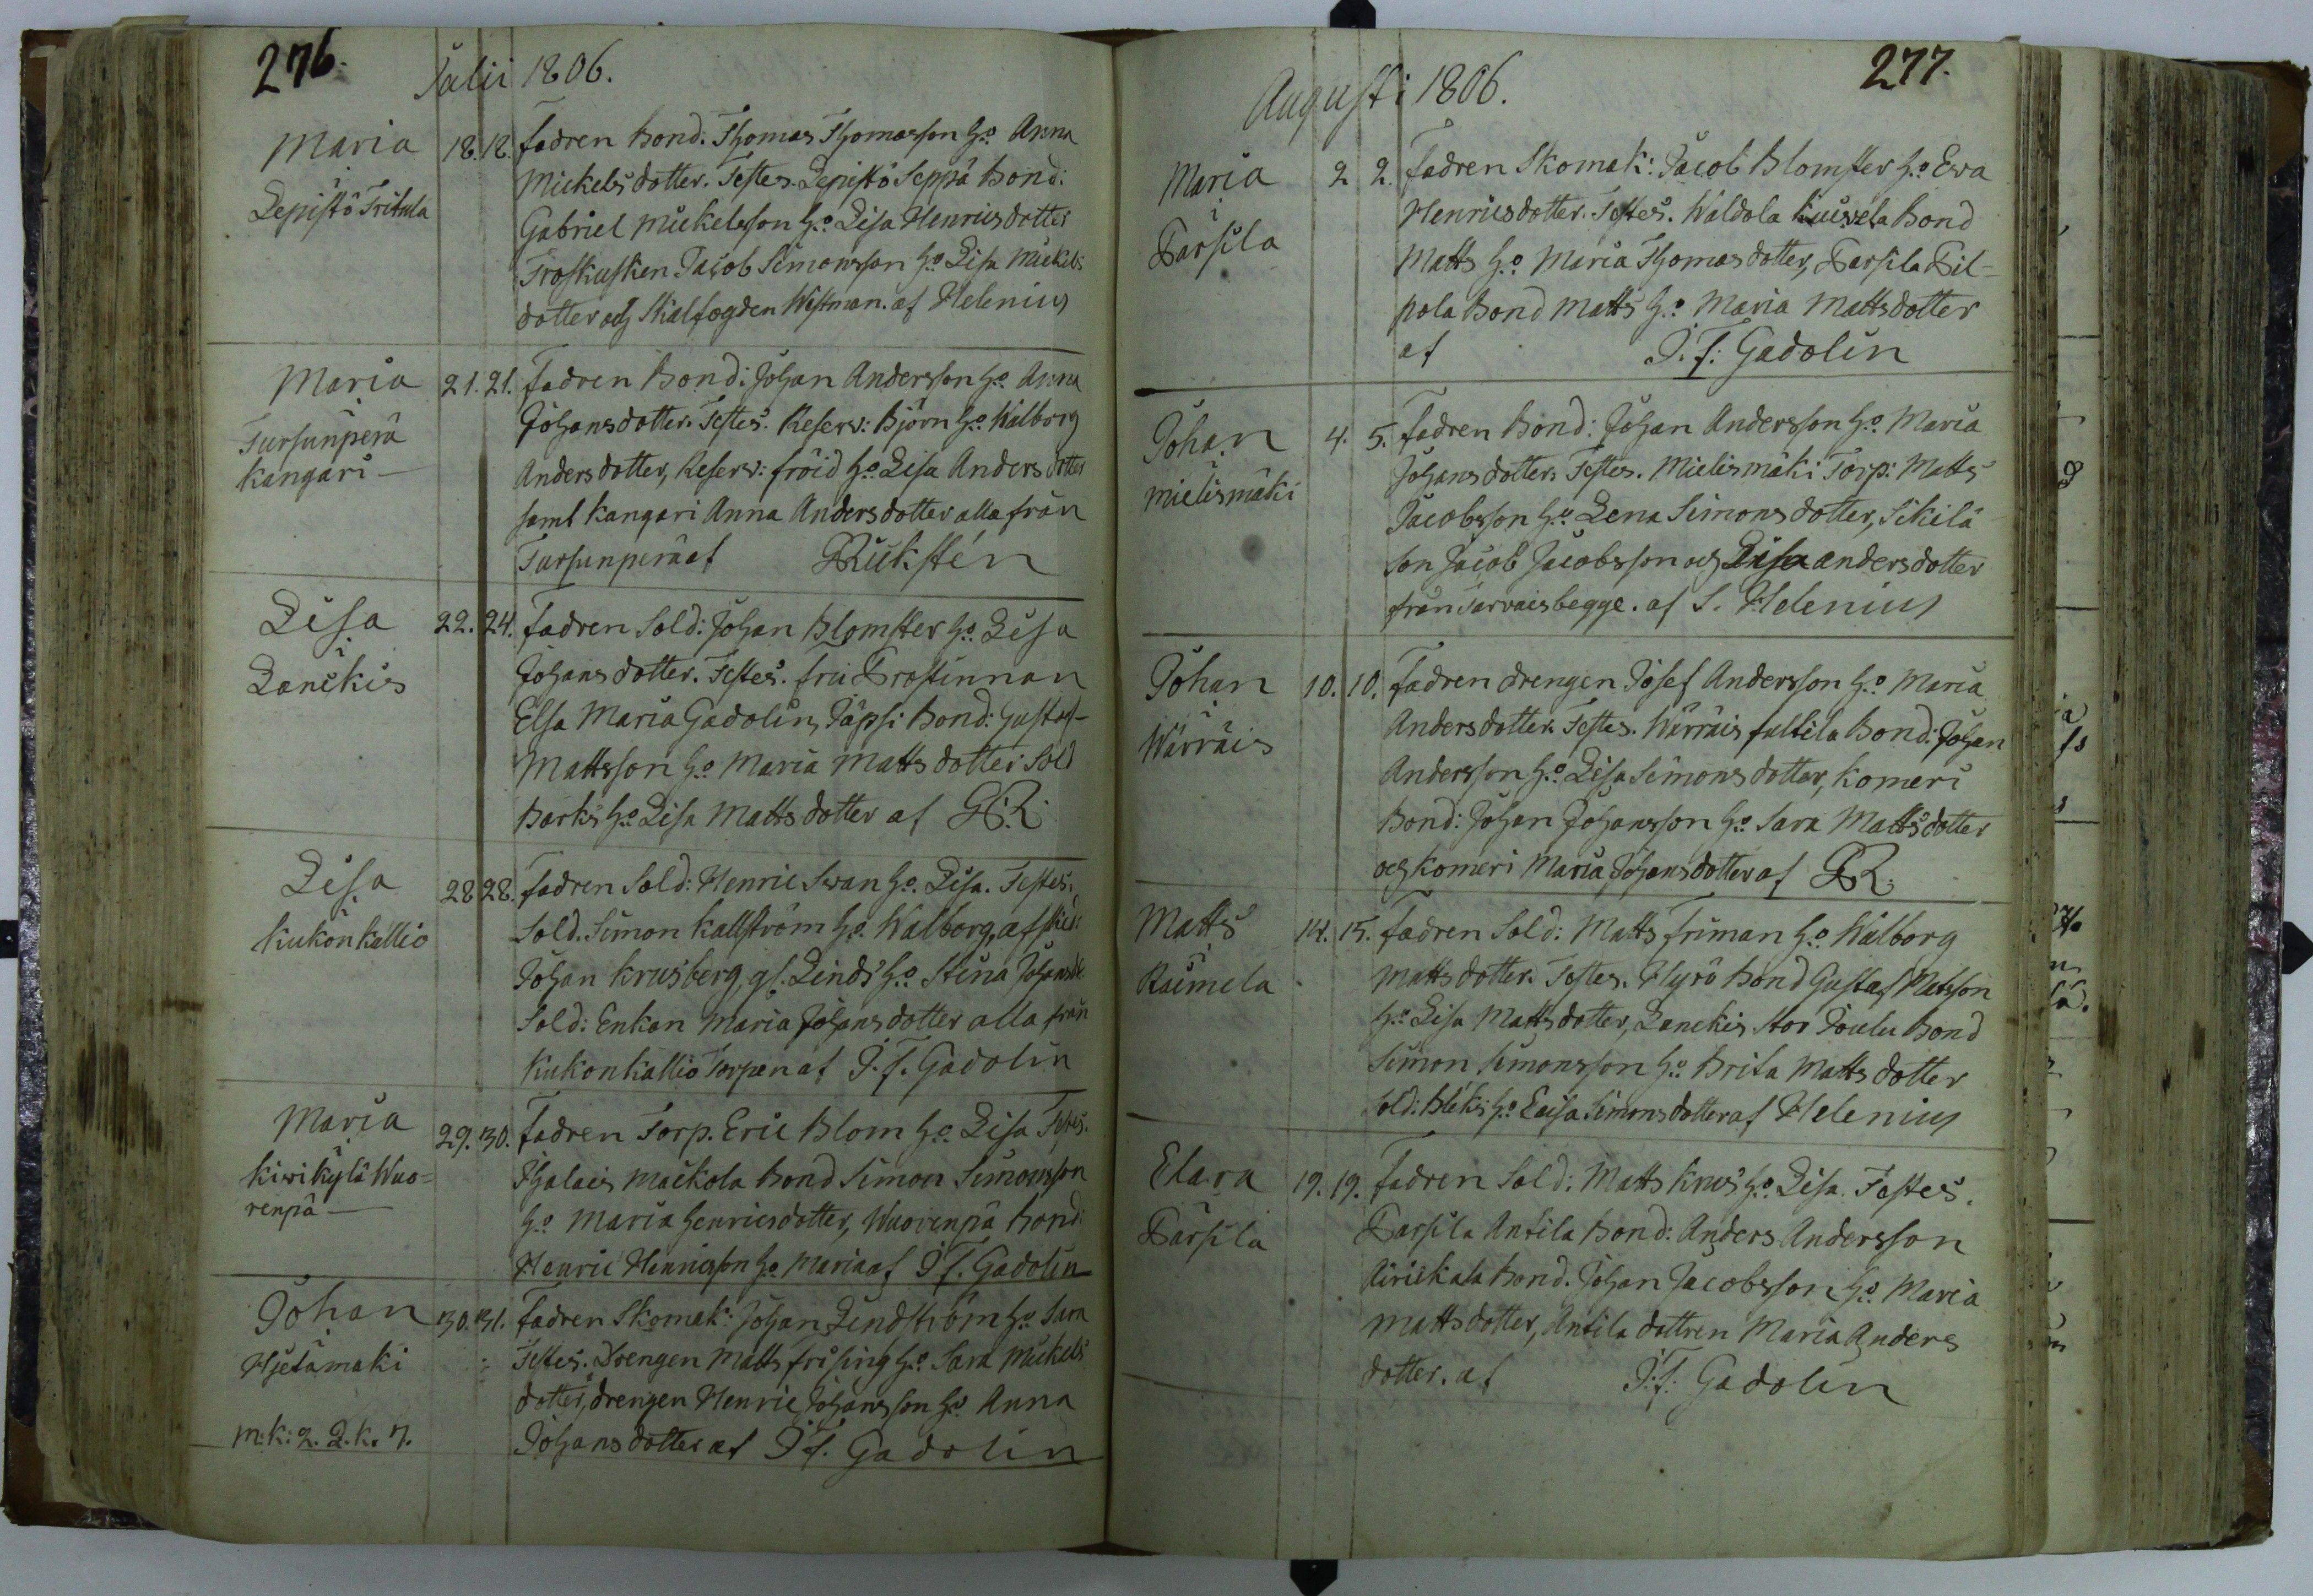 276.
Julii 1806.
Maria
i
Lepistö Tritula
18. 18. Fadren Bond. Thomas Thomasson h:o Anna
Mickelsdotter. Testes. Lepistö Seppä Bond:
Gabriel Mickelsson h:o Lisa Henricsdotter
Troskusken Jacob Simonsson h:o Lisa Mickels
dotter och Skalfogden Westman. af Helenius
Maria
Tursunperä
Kangari
21. 21. Fadren Bond: Johan Andersson h:o Anna
Johansdotter. Testes. Reserv: Björn h:o Walborg
Andersdotter, Reserv: Fröid h:o Lisa Anders dotter
samt Kangari Anna Andersdotter alla från
Tursunperä af GRickstén
Lisa
i
Lanckis
22. 24. Fadren Sold: Johan Blomster h:o Lisa
Johansdotter. Testes. fru Prostinnan
Elsa Maria Gadolin, Jäpsi Bond: Gustaf
Mattsson h:o Maria Mattsdotter Sold
Barks h:o Lisa Mattsdotter af G:R:
Lisa
Kukonkallio
28 28. Fadren Sold: Henric Swan h:o Lisa. Testes.
Sold. Simon Kallström h:o Walborg, afsked:
Johan Krusberg, gl. Linds h:o Stina Johansdr
Sold: Enkan Maria Johansdotter alla från
Kukonkallio Torpen af J. F. Gadolin
Maria
i
Kiwikylä Wuo=
renpä
29. 30. Fadren Torp. Eric Blom h:o Lisa Testes.
Ihalais Maickola Bond Simon Simonsson
h:o Maria Henricsdotter, Wuorenpä Bond:
Henric Henricsson h:o Maria af J F. Gadolin
Johan
Hjetamaki
m:k: 2. Q.k. 7.
30. 31. Fadren Skomak: Johan Lindström h:o Sara
Testes. Drengen Matts Frising h:o Sara Mickels
dotter, drengen Henric Johansson h:o Anna
Johansdotter af J F. Gadolin
277.
Augusti 1806.
Maria
i
Parsila
2 2. Fadren Skomak: Jacob Blomster h:o Ewa
Henricsdotter. Testes. Waldola Kuisela Bond
Matts h:o Maria Thomasdotter, Parsila Pil=
pola Bond Matts h:o Maria Mattsdotter
af J. F: Gadolin
Johan
Mielismäki
4. 5. Fadren Bond: Johan Andersson h:o Maria
Johansdotter. Testes. Mielismäki Torp: Matts
Jacobsson h:o Lena Simonsdotter, Sikilä
Son Jacob Jacobsson och Lisa andersdotter
från Tarvais begge. af S. Helenius
Johan
i
Wärräis
10. 10. Fadren drengen Josef Andersson h:o Maria
Andersdotter. Testes. Wärräis Fultila Bond: Johan
Andersson h:o Lisa Simonsdotter, Komeri
Bond: Johan Johansson h:o Sara Mattsdotter
och Komeri Maria Johansdotter af GR.
Matts
i
Raimela
14. 15. Fadren Sold: Matts Friman h:o Walborg
Mattsdotter. Testes. Hyrö Bond Gustaf Matsson
h:o Lisa Mattsdotter, Lanckis Stor Joulu Bond
Simon Simonsson h:o Brita Mattsdotter
Sold: Bleks h:o Caisa Simonsdotter af Helenius
Clara
i
Parsila
19. 19. Fadren Sold: Matts Krus h:o Lisa. Testes.
Parsila Antila Bond: Anders Andersson
Airickala Bond. Johan Jacobsson h:o Maria
Mattsdotter, Antila dottren Maria Anders
dotter. af J: F: Gadolin